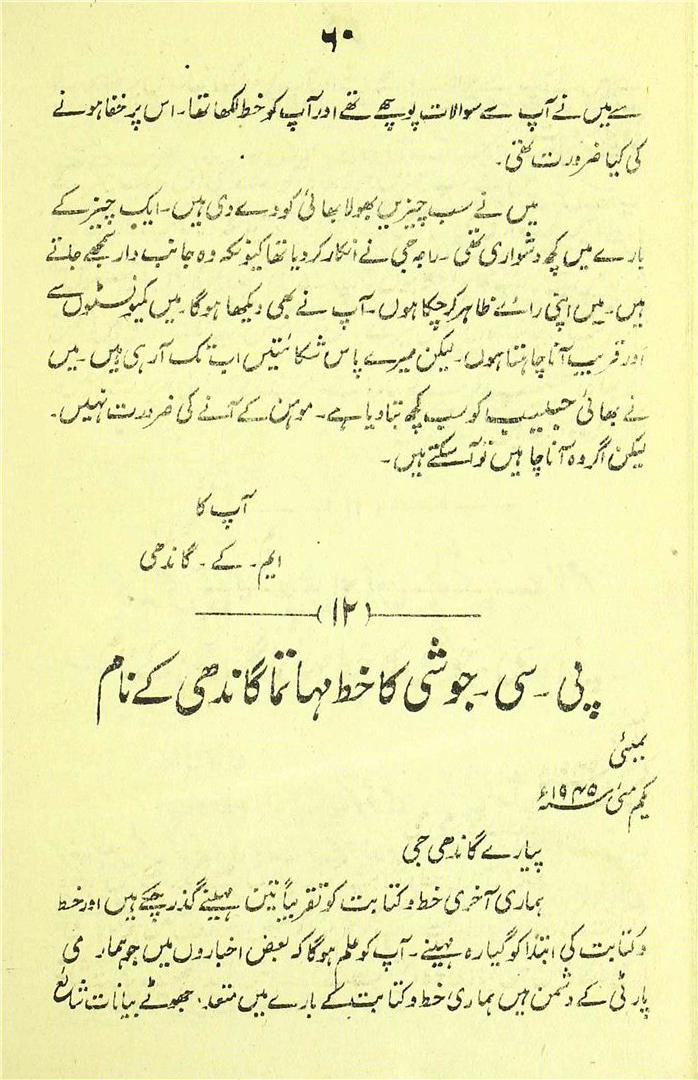 ۶۰
سے میں نے آپ سے سوالات پوچھے تھے اور آپ کو خط لکھا تھا۔ اس پر خفا ہونے
کی کیا ضرورت تھی۔
میں نے سب چیزیں بھولا بھائی کو دے دی ہیں۔ ایک چیز کے
بارے میں کچھ دشواری تھی۔ راجہ جی نے انکار کر دیا تھا کیونکہ وہ جانب دار سمجھے جاتے
ہیں۔ میں اپنی رائے ظاہر کر چکا ہوں۔ آپ نے بھی دیکھا ہوگا۔ میں کمیونسٹوں سے
اور قریب آنا چاہتا ہوں۔ لیکن میرے پاس شکائتیں اب تک آ رہی ہیں۔ میں
نے بھائی حبیب کو سب کچھ بتا دیا ہے۔ موہن کے آنے کی ضرورت نہیں۔
لیکن اگر وہ آنا چاہیں تو آ سکتے ہیں۔
آپ کا
ایم۔ کے۔ گاندھی
(۱۲)
پی۔ سی۔ جوشی کا خط مہاتما گاندھی کے نام
بمبئی
یکم مئی ۱۹۴۵ء
پیارے گاندھی جی
ہماری آخری خط و کتابت کو تقریباً تین مہینے گذر چکے ہیں اور خط
و کتابت کی ابتدا کو گیارہ مہینے۔ آپ کو علم ہوگا کہ بعض اخباروں میں جو ہماری
پارٹی کے دشمن ہیں ہماری خط و کتابت کے بارے میں متعدد جھوٹے بیانات شائع